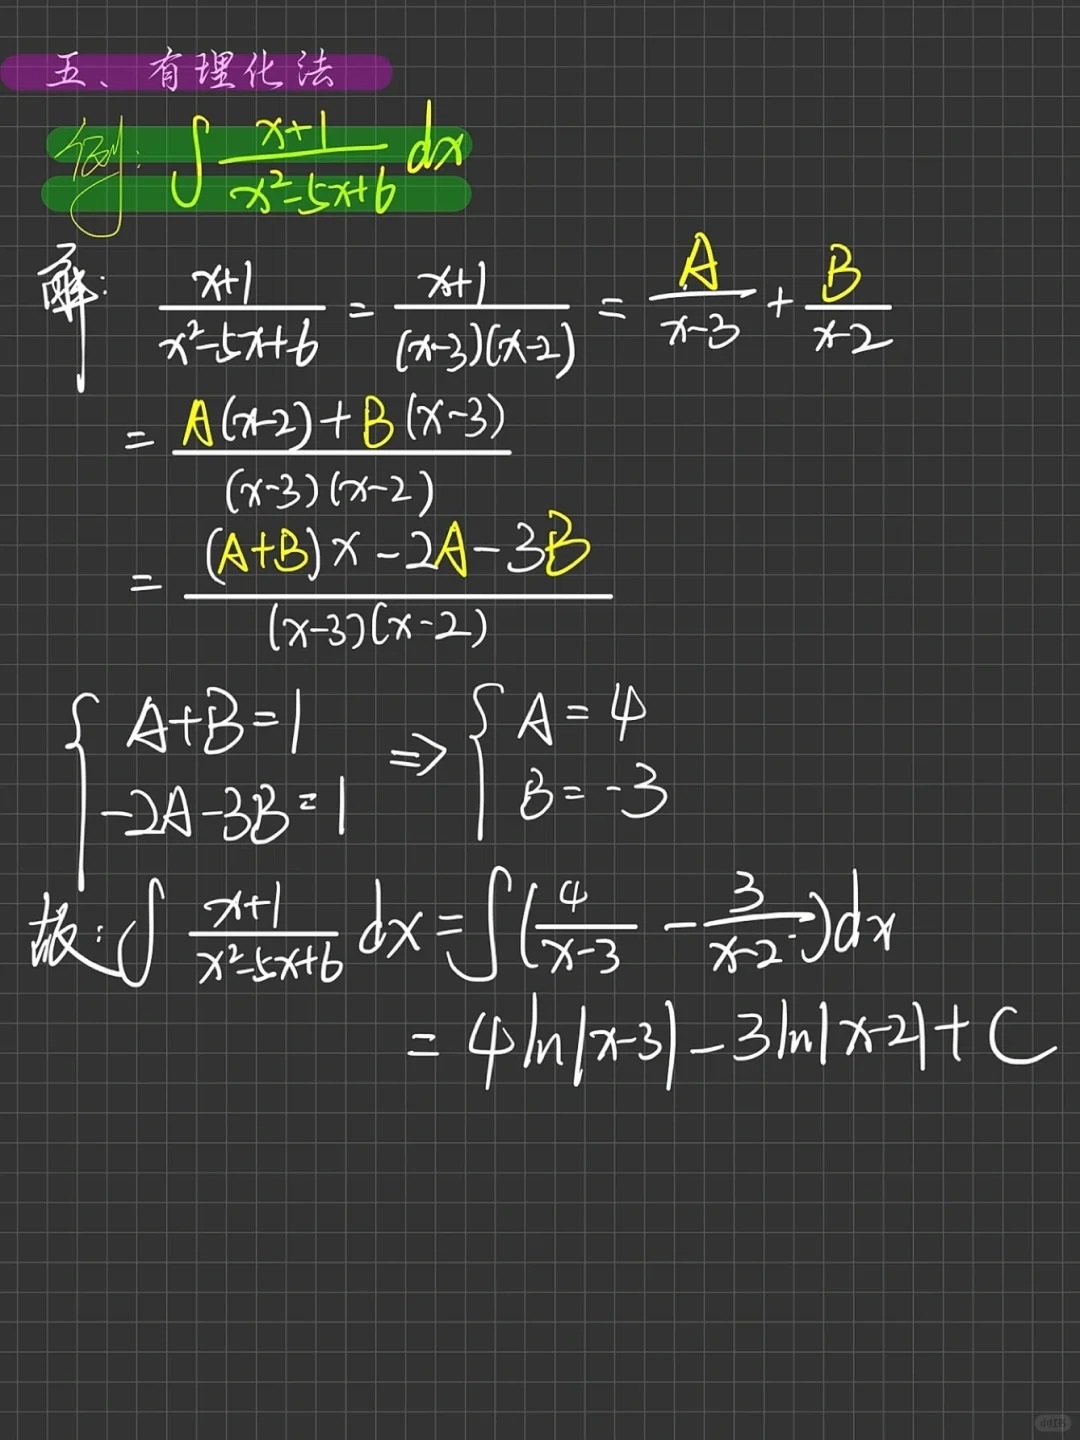 五、有理化法
例: ∫ (x+1)/(x²-5x+6) dx
解: (x+1)/(x²-5x+6) = (x+1)/((x-3)(x-2)) = A/(x-3) + B/(x-2)
= (A(x-2)+B(x-3))/((x-3)(x-2))
= ((A+B)x-2A-3B)/((x-3)(x-2))
{ A+B=1 ⇒ { A=4
-2A-3B=1 B=-3
故: ∫ (x+1)/(x²-5x+6) dx = ∫ (4/(x-3) - 3/(x-2)) dx
= 4ln|x-3| - 3ln|x-2| + C
小红书